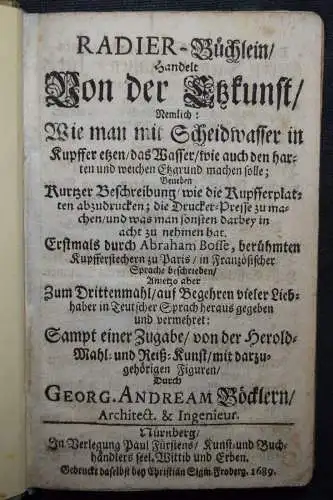 RADIER-Büchlein/
Handelt
Von der Etzkunst/
Nemlich:
Wie man mit Scheidwasser in
Kupffer etzen/das Wasser/wie auch den har-
ten und weichen Etzgrund machen solle;
Beneben
Kurtzer Beschreibung/wie die Kupfferplat-
ten abzudrucken; die Drucker-Presse zu ma-
chen/und was man sonsten darbey in
acht zu nehmen hat.
Erstmals durch Abraham Bosse, berühmten
Kupfferstechern zu Paris/in Französischer
Sprache beschrieben/
Anietzo aber
Zum Drittenmahl/auf Begehren vieler Lieb-
haber in Teutscher Sprach heraus gegeben
und vermehret:
Sampt einer Zugabe/von der Herold-
Mahl- und Reiß-Kunst/mit darzu-
gehörigen Figuren/
Durch
GEORG. ANDREAM Böcklern/
Architect. & Ingenieur.
Nürnberg/
In Verlegung Paul Fürstens/Kunst- und Buch-
händlers seel. Wittib und Erben.
Gedruckt daselbst bey Christian Sigm. Froberg. 1689.